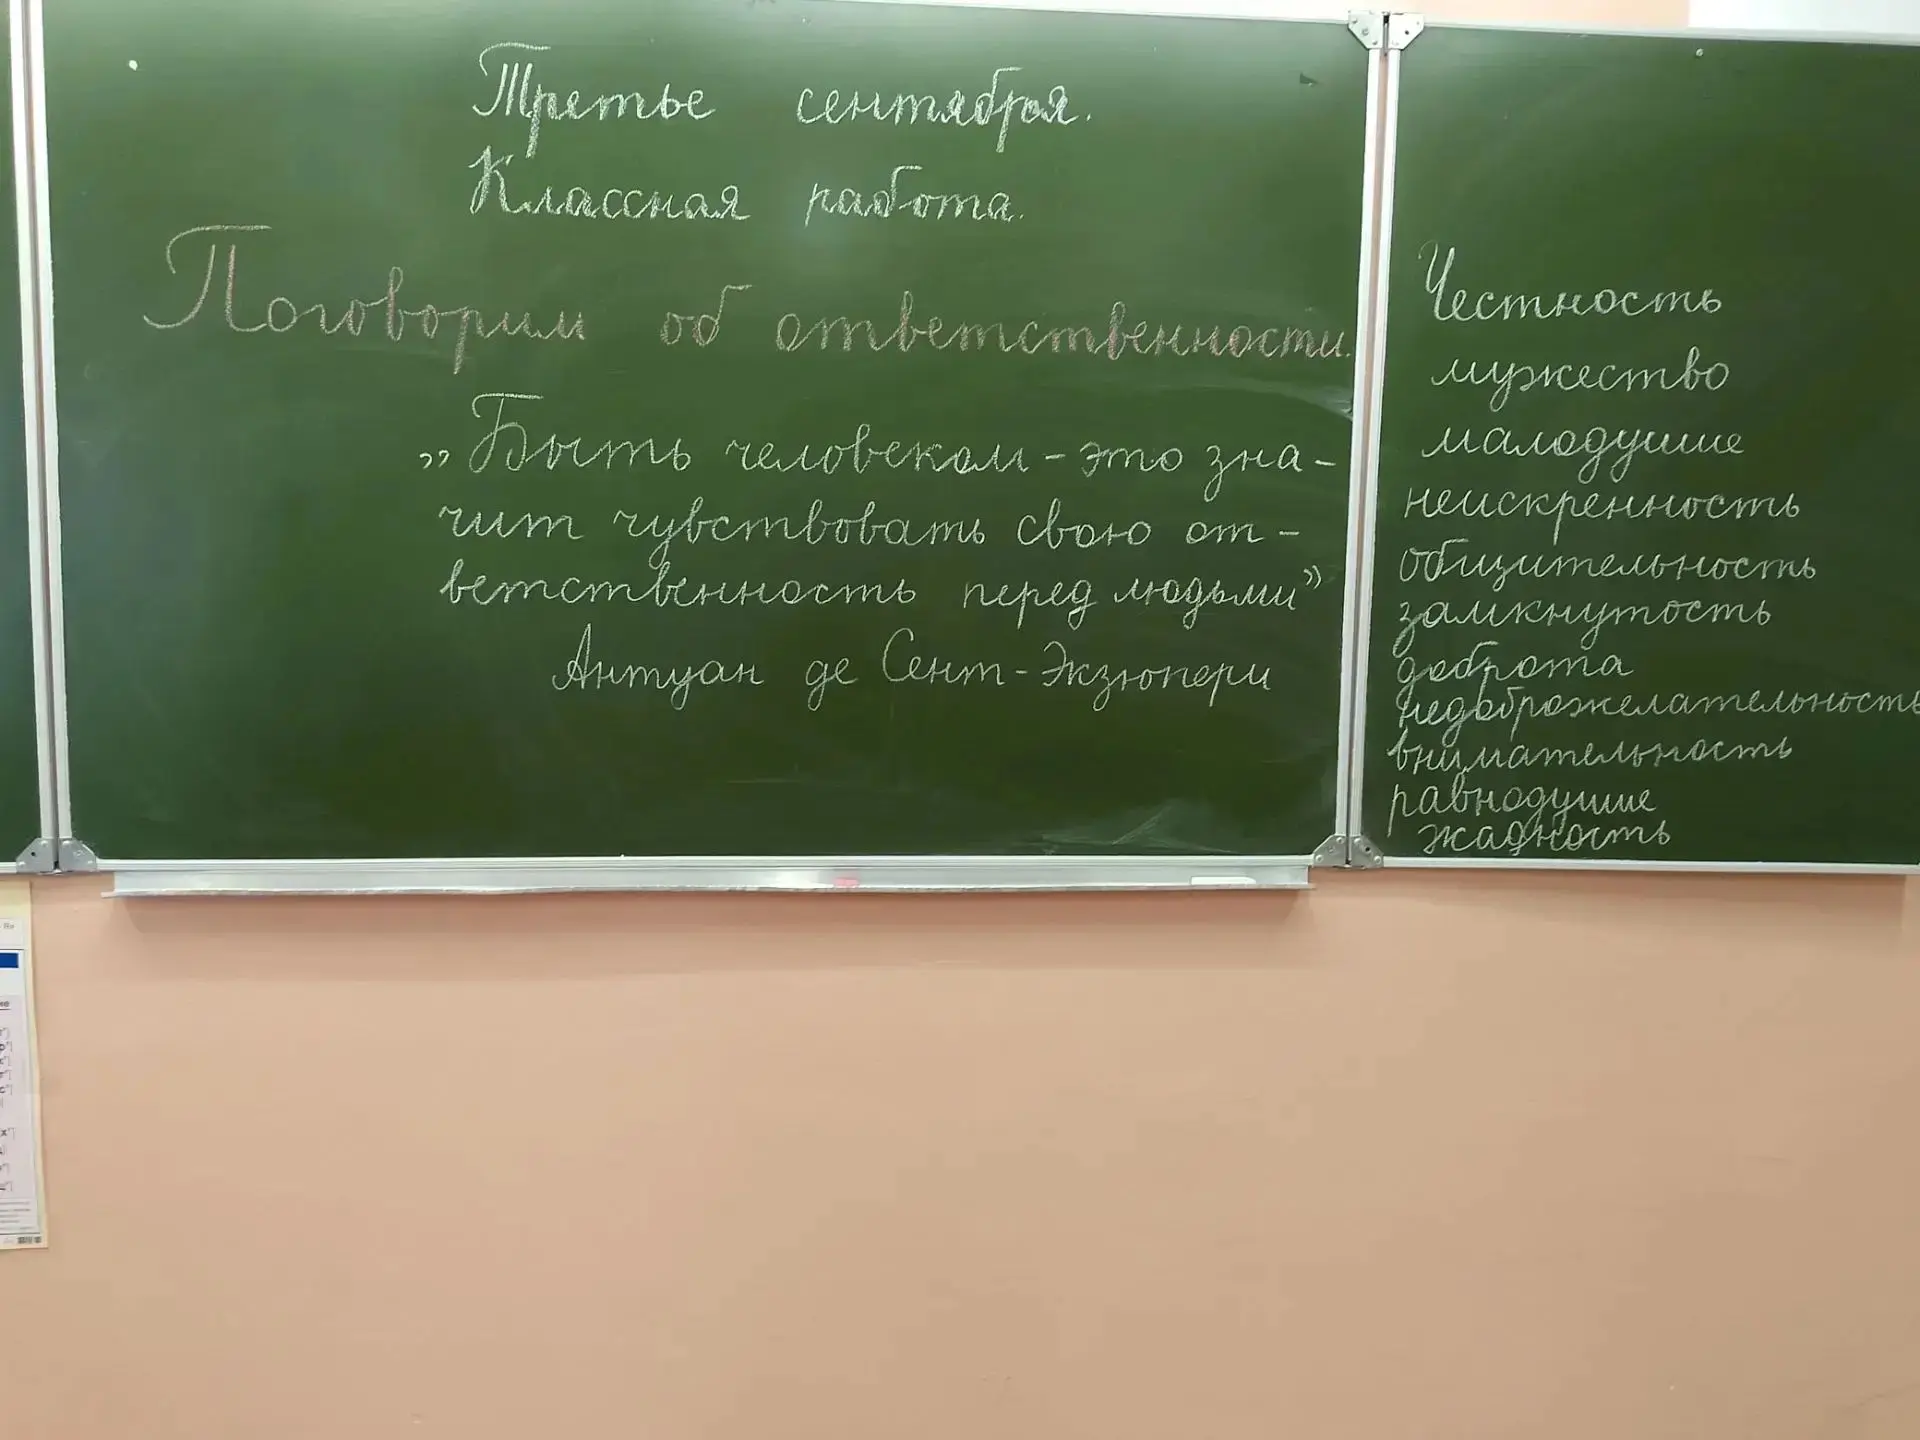 Третье сентября.
Классная работа.
Поговорим об ответственности.
„Быть человеком – это зна-
чит чувствовать свою от-
ветственность перед людьми”
Антуан де Сент-Экзюпери
Честность
мужество
малодушие
неискренность
общительность
замкнутость
доброта
недоброжелательность
внимательность
равнодушие
жадность